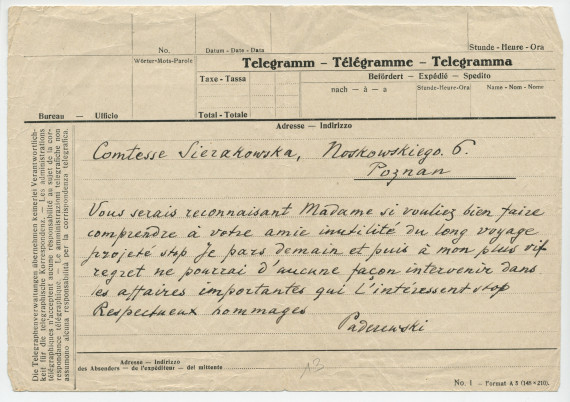 No.
Datum - Date - Data
Stunde - Heure - Ora
Wörter-Mots-Parole
Telegramm – Télégramme – Telegramma
Taxe - Tassa
Befördert – Expédié – Spedito
nach - à - a
Stunde-Heure-Ora
Name - Nom - Nome
Bureau — Ufficio
Total - Totale
Adresse — Indirizzo
Comtesse Sierakowska, Noskowskiego. 6.
Poznan
Vous serais reconnaisant Madame si vouliez bien faire
comprendre à votre amie inutilité du long voyage
projeté stop Je pars demain et puis à mon plus vif
regret ne pourrai d'aucune façon intervenir dans
es affaires importantes qui l'intéressent stop
Respectueux hommages
Paderewski
Die Telegraphenverwaltungen übernehmen keinerlei Verantwortlich-
keit für die telegraphische Korrespondenz. — Les administrations
télégraphiques n'acceptent aucune résponsabilité au sujet de la cor-
respondance télégraphique. — Le amministrazioni telegrafiche non
assumono alcuna responsabilità per la corrispondenza telegrafica.
Adresse — Indirizzo
des Absenders — de l'expéditeur — del mittente
13
No. 1 – Format A 5 (148×210).